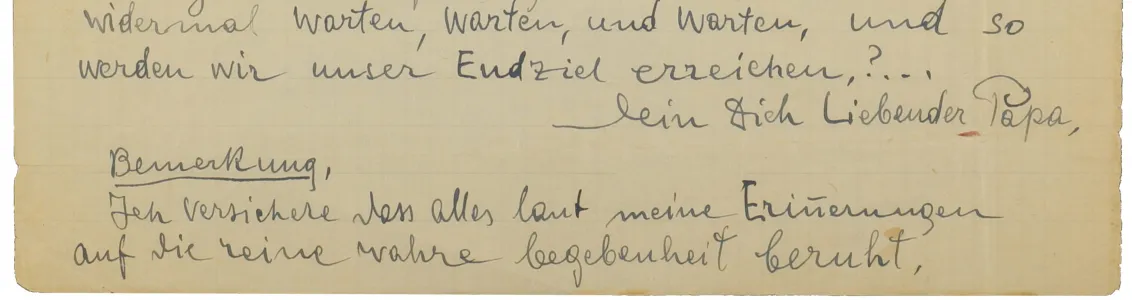 widermal Warten, Warten, und Warten, und so
werden wir unser Endziel erreichen,?...
Dein Dich Liebender Papa,
Bemerkung,
Ich versichere dass alles laut meine Erinerungen
auf die reine wahre begebenheit beruht,